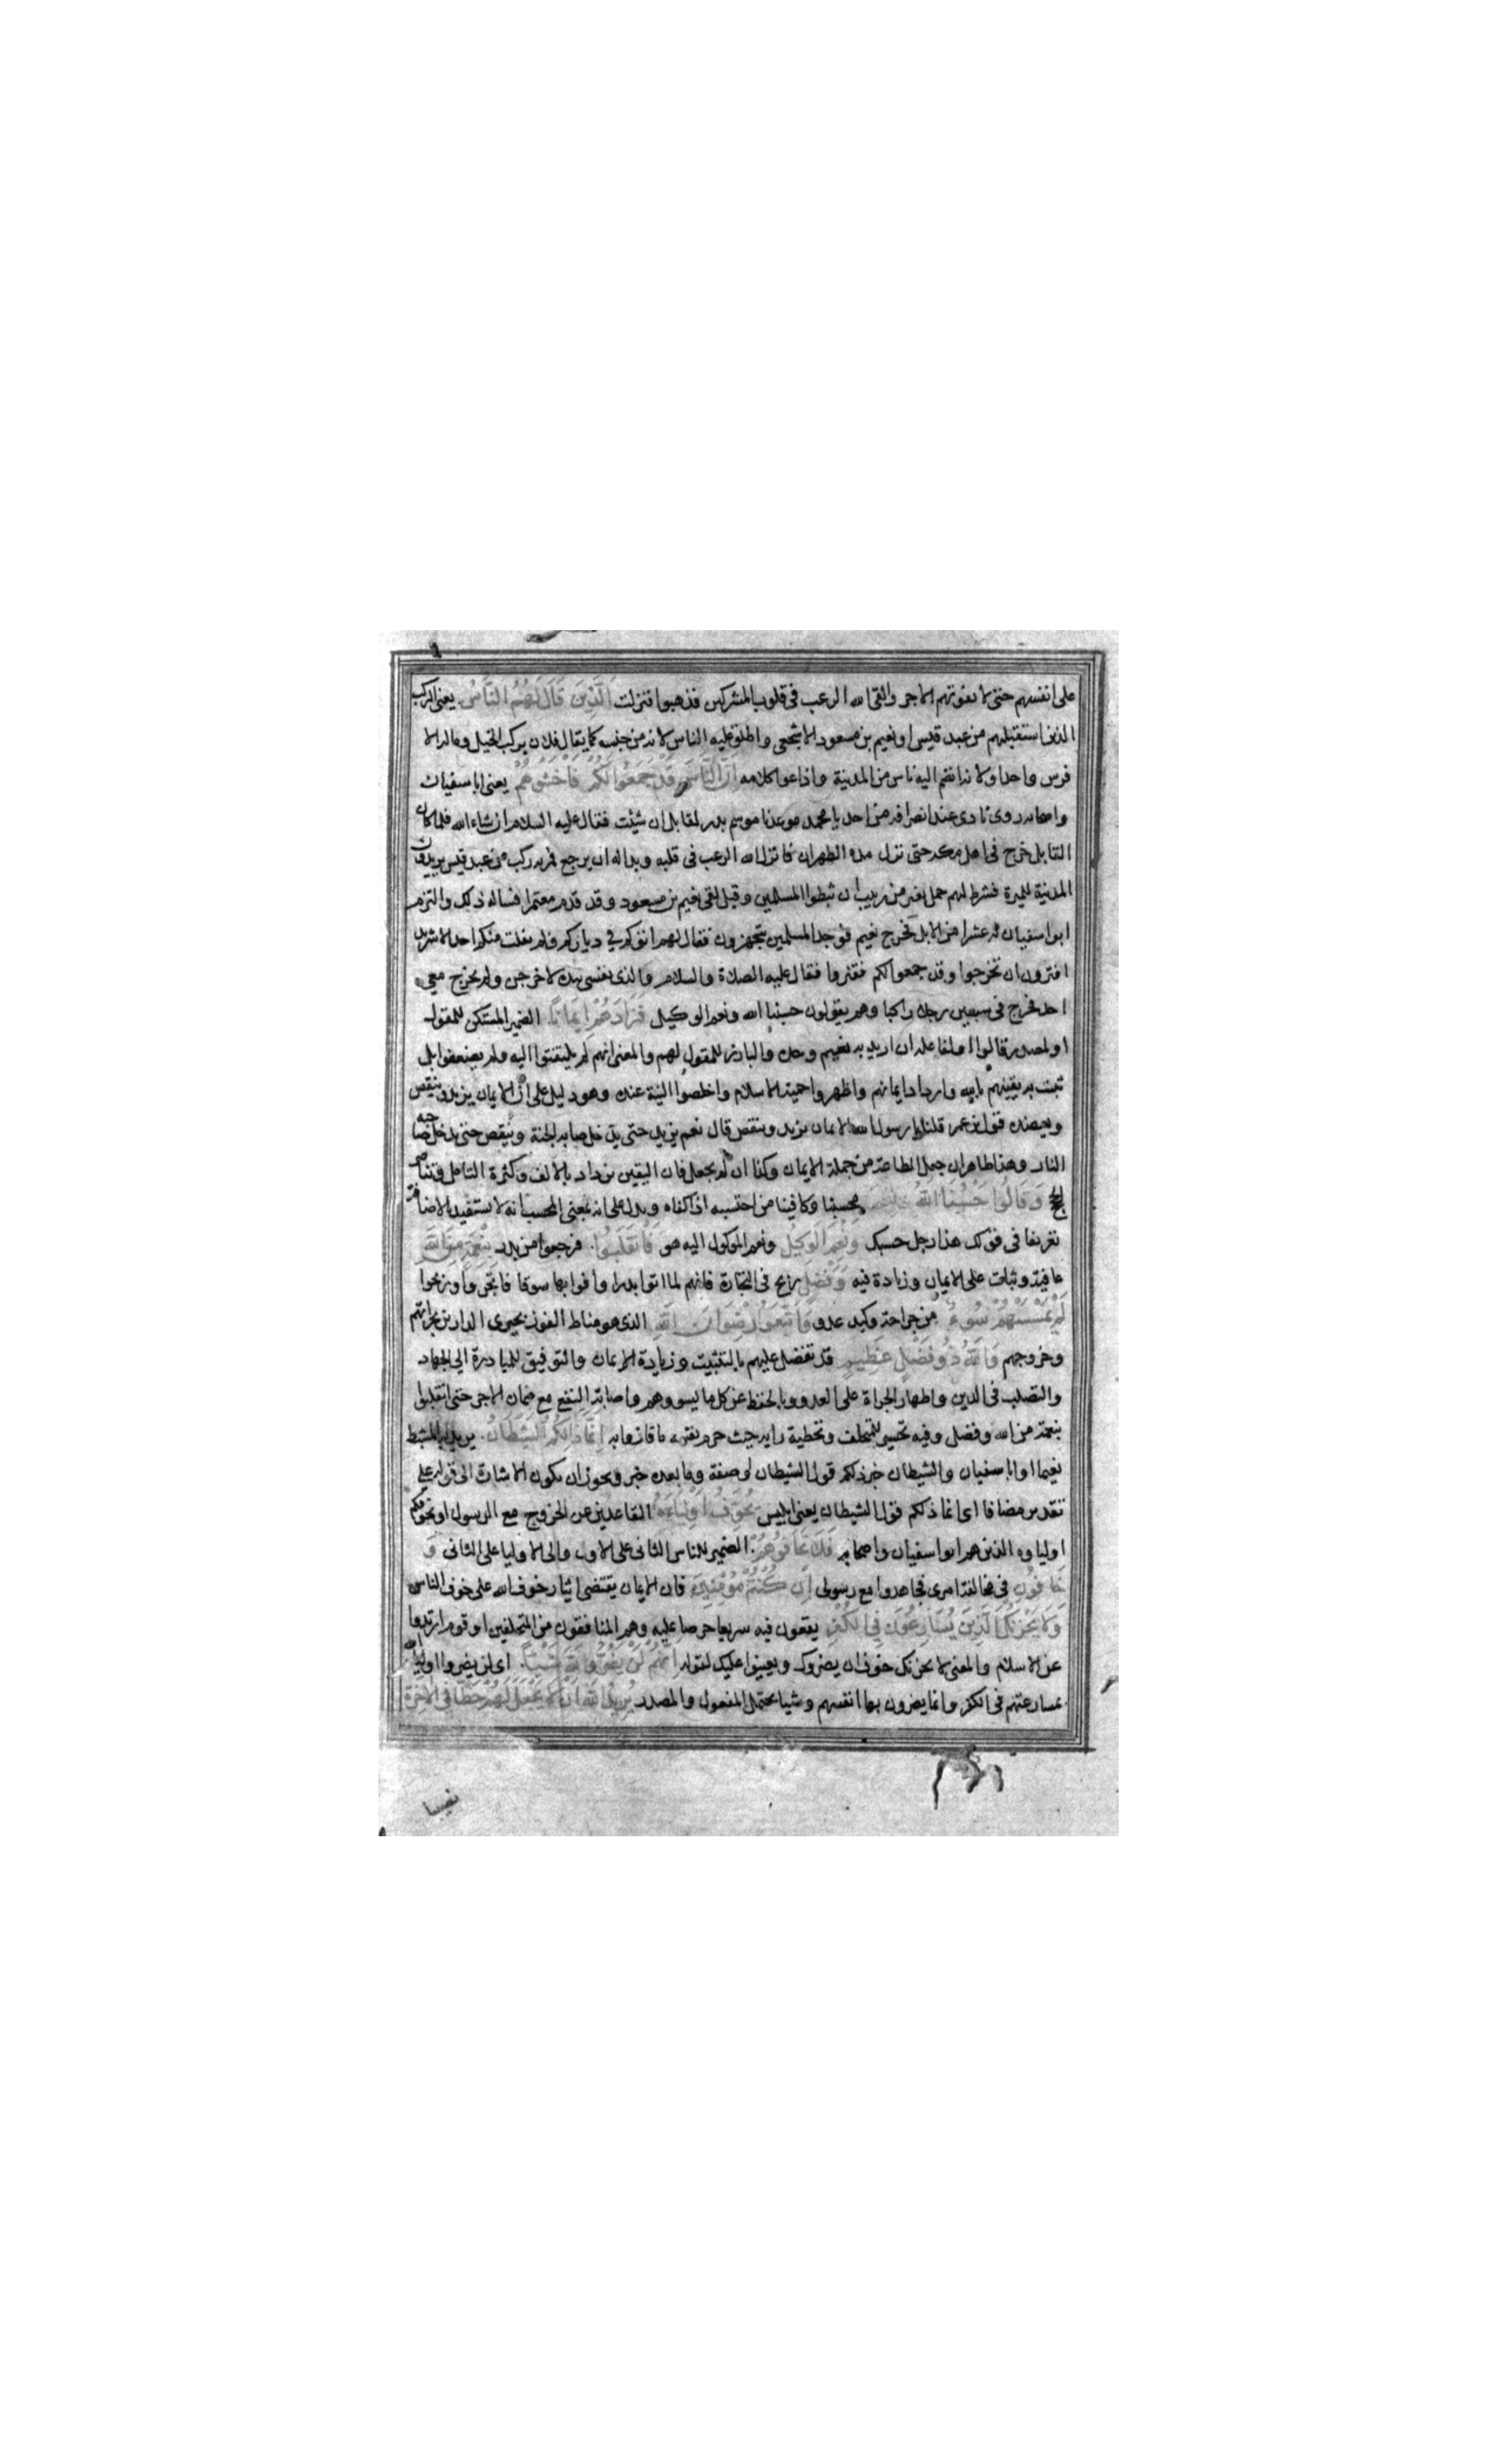 على انفسهم حتى لا يفوتهم الاجر والقى الله الرعب فى قلوب المشركين فذهبوا فنزلت الَّذِينَ قَالَ لَهُمُ النَّاسُ يعنى الركب
الذين استقبلهم من عبد قيس او نعيم بن مسعود الاشجعى واطلق عليه الناس لانه من جنسه كما يقال فلان يركب الخيل وماله الا
فرس واحد او لانه انضم اليه ناس من المدينة واذاعوا كلامه اِنَّ النَّاسَ قَدْ جَمَعُوا لَكُمْ فَاخْشَوْهُمْ يعنى ابا سفيان
واصحابه روى نادى عند انصرافه من احد يا محمد موعدنا موسم بدر لقابل ان شئت فقال عليه السلام ان شاء الله فلما كان
القابل خرج فى اهل مكة حتى نزل مره الظهران فانزل الله الرعب فى قلبه وبدا له ان يرجع فمر به ركب من عبد قيس يريدون
المدينة للميرة فشرط لهم حمل بعير من زبيب ان ثبطوا المسلمين وقيل لقى نعيم بن مسعود وقد قدم معتمرا فساله ذلك والتزم
ابوا سفيان له عشرا من الابل فخرج نعيم فوجد المسلمين يتجهزون فقال لهم اتوكم في دياركم فلم يفلت منكم احد الا شريد
افترون ان تخرجوا وقد جمعوا لكم ففتروا فقال عليه الصلاة والسلام والذى نفسى بيده لاخرجن ولو لم يخرج معى
احد فخرج فى سبعين رجلا راكبا وهم يقولون حسبنا الله ونعم الوكيل فَزَادَهُمْ اِيمَانًا الضمير المستكن للمقول
او لمصدر قالوا او لفاعله ان اريد به نعيم وحده والبارز للمقول لهم والمعنى انهم لم يلتفتوا اليه ولم يضعفوا بل
ثبت به يقينهم بالله وازداد ايمانهم واظهروا حمية الاسلام واخلصوا النية عنده وهو دليل على ان الايمان يزيد وينقص
ويعضده قول بن عمر قلنا يا رسول الله الايمان يزيد وينقص قال نعم يزيد حتى يدخل صاحبه الجنة وينقص حتى يدخل صاحبه
النار وهذا ظاهر ان جعل الطاعة من جملة الايمان وكذا ان لم يجعل فان اليقين يزداد بالالف وكثرة التامل وتناصر
الحجج وَقَالُوا حَسْبُنَا اللّٰهُ محسبنا وكافينا من احسبه اذا كفاه ويدل على انه بمعنى المحسب انه لا يستفيد الاضافة
تعريفا فى قولك هذا رجل حسبك وَنِعْمَ الْوَكِيلُ ونعم الموكول اليه هو فَانْقَلَبُوا فرجعوا من بدر بِنِعْمَةٍ مِنَ اللّٰهِ
عافية وثبات على الايمان وزيادة فيه وَفَضْلٍ ربح فى التجارة فانهم لما اتوا بدرا وافوا بها سوقا فاتجروا وربحوا
لَمْ يَمْسَسْهُمْ سُوءٌ من جراحة وكيد عدو وَاتَّبَعُوا رِضْوَانَ اللّٰهِ الذى هو مناط الفوز بخيرى الدارين بجراتهم
وخروجهم وَاللّٰهُ ذُو فَضْلٍ عَظِيمٍ قد تفضل عليهم بالتثبيت وزيادة الايمان والتوفيق للمبادرة الى الجهاد
والتصلب فى الدين واظهار الجراة على العدو وبالحفظ عن كل ما يسووهم واصابة النفع مع ضمان الاجر حتى انقلبوا
بنعمة من الله وفضل وفيه تحسير للمتخلف وتخطية رايه حيث حرم نفسه ما فازوا به اِنَّمَا ذٰلِكُمُ الشَّيْطَانُ يريد به المثبط
نعيما او ابا سفيان والشيطان خبر ذلكم قول الشيطان او صفة وما بعده خبر ويجوز ان يكون الاشارة الى قوله على
تقدير مضاف اى انما ذلكم قول الشيطان يعنى ابليس يُخَوِّفُ اَوْلِيَاءَهُ القاعدين عن الخروج مع الرسول او يخوفكم
اولياوه الذين هم ابوا سفيان واصحابه فَلَا تَخَافُوهُمْ الضمير للناس الثانى على الاول والى الاوليا على الثانى وَ
خَافُونِ فى مخالفة امرى فجاهدوا مع رسولى اِنْ كُنْتُمْ مُؤْمِنِينَ فان الايمان يقتضى ايثار خوف الله على خوف الناس
وَلَا يَحْزُنْكَ الَّذِينَ يُسَارِعُونَ فِي الْكُفْرِ يقعون فيه سريعا حرصا عليه وهم المنافقون من المتخلفين او قوم ارتدوا
عن الاسلام والمعنى لا يحزنك خوف ان يضروك ويعينوا عليك لقوله اِنَّهُمْ لَنْ يَضُرُّوا اللّٰهَ شَيْئًا اى لن يضروا اولياء الله
بمسارعتهم فى الكفر وانما يضرون بها انفسهم وشيا يحتمل المفعول والمصدر يُرِيدُ اللّٰهُ اَنْ لَا يَجْعَلَ لَهُمْ حَظًّا فِي الْآخِرَةِ
نصيبا